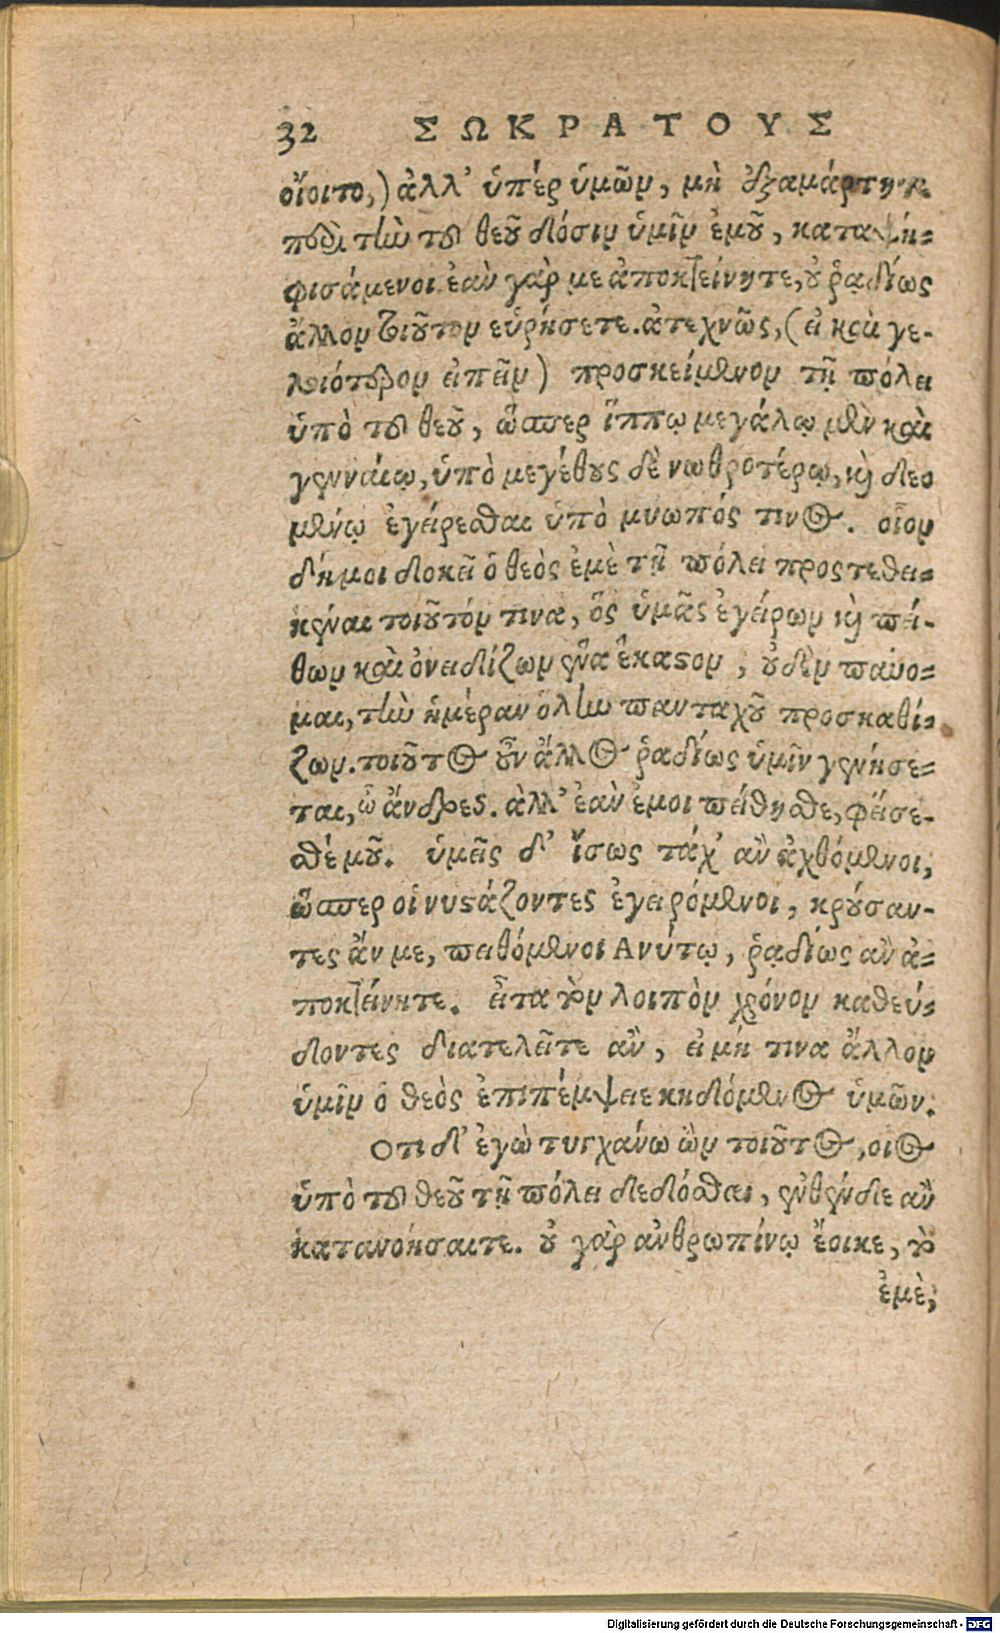 32 ΣΩΚΡΑΤΟΥΣ
οἴοιτο,) ἀλλ’ ὑπέρ ὑμῶν, μὴ ἐξαμάρτητε
περὶ τὴν τοῦ θεοῦ δόσιν ὑμῖν ἐμοῦ, καταψη-
φισάμενοι. ἐὰν γὰρ με ἀποκτείνητε, οὐ ῥᾳδίως
ἄλλον τοιοῦτον εὑρήσετε. ἀτεχνῶς, (εἰ καὶ γε-
λοιότερον εἰπεῖν) προσκείμενον τῇ πόλει
ὑπὸ τοῦ θεοῦ, ὥσπερ ἵππῳ μεγάλῳ μὲν καὶ
γενναίῳ, ὑπὸ μεγέθους δὲ νωθροτέρῳ, καὶ δεο
μένῳ ἐγείρεσθαι ὑπὸ μυωπός τινος. οἷον
δή μοι δοκεῖ ὁ θεὸς ἐμὲ τῇ πόλει προςτεθει-
κέναι τοιοῦτόν τινα, ὃς ὑμᾶς ἐγείρων καὶ πεί-
θων καὶ ὀνειδίζων ἕνα ἕκαστον, οὐδὲν παύο-
μαι, τὴν ἡμέραν ὅλην πανταχοῦ προσκαθί-
ζων. τοιοῦτος οὖν ἄλλος ῥαδίως ὑμῖν γενήσε-
ται, ὦ ἄνδρες. ἀλλ’ ἐὰν ἐμοι πείθησθε, φείσε-
σθέ μου. ὑμεῖς δ’ ἴσως τάχ’ ἂν ἀχθόμενοι,
ὥσπερ οἱ νυστάζοντες ἐγειρόμενοι, κρούσαν-
τες ἄν με, πειθόμενοι Ανύτῳ, ῥᾳδίως ἂν ἀ-
ποκτείνητε. εἶτα τὸν λοιπὸν χρόνον καθεύ-
δοντες διατελεῖτε ἂν, εἰ μή τινα ἄλλον
ὑμῖν ὁ θεὸς ἐπιπέμψειε κηδόμενος ὑμῶν.
Οτι δ’ ἐγὼ τυγχάνω ὢν τοιοῦτος, οιος
ὑπὸ τοῦ θεοῦ τῇ πόλει δεδόσθαι, ἐνθένδε ἂν
κατανοήσαιτε. οὐ γὰρ ἀνθρωπίνῳ ἔοικε, τὸ
ἐμὲ,
Digitalisierung gefördert durch die Deutsche Forschungsgemeinschaft - DFG